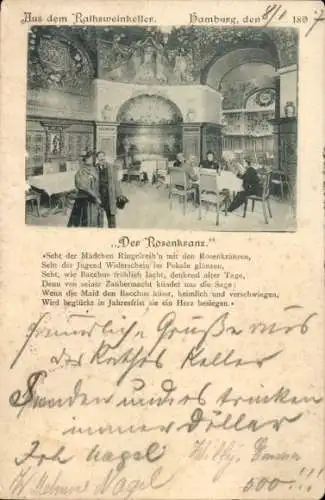 Aus dem Rathsweinkeller. Hamburg, den 8/11 1897
„Der Rosenkranz."
»Seht der Mädchen Ringelreih'n mit den Rosenkränzen,
Seht der Jugend Widerschein im Pokale glänzen,
Seht, wie Bacchus fröhlich lacht, denkend alter Tage,
Denn von seiner Zaubermacht kündet uns die Sage:
Wenn die Maid den Bacchus küsst, heimlich und verschwiegen,
Wird beglückt in Jahresfrist sie ein Herz besiegen.«
Freundliche Grüße aus
der Raths Keller
und trinken
immer Döller
Joh Nagel
Nagel
500 !!!